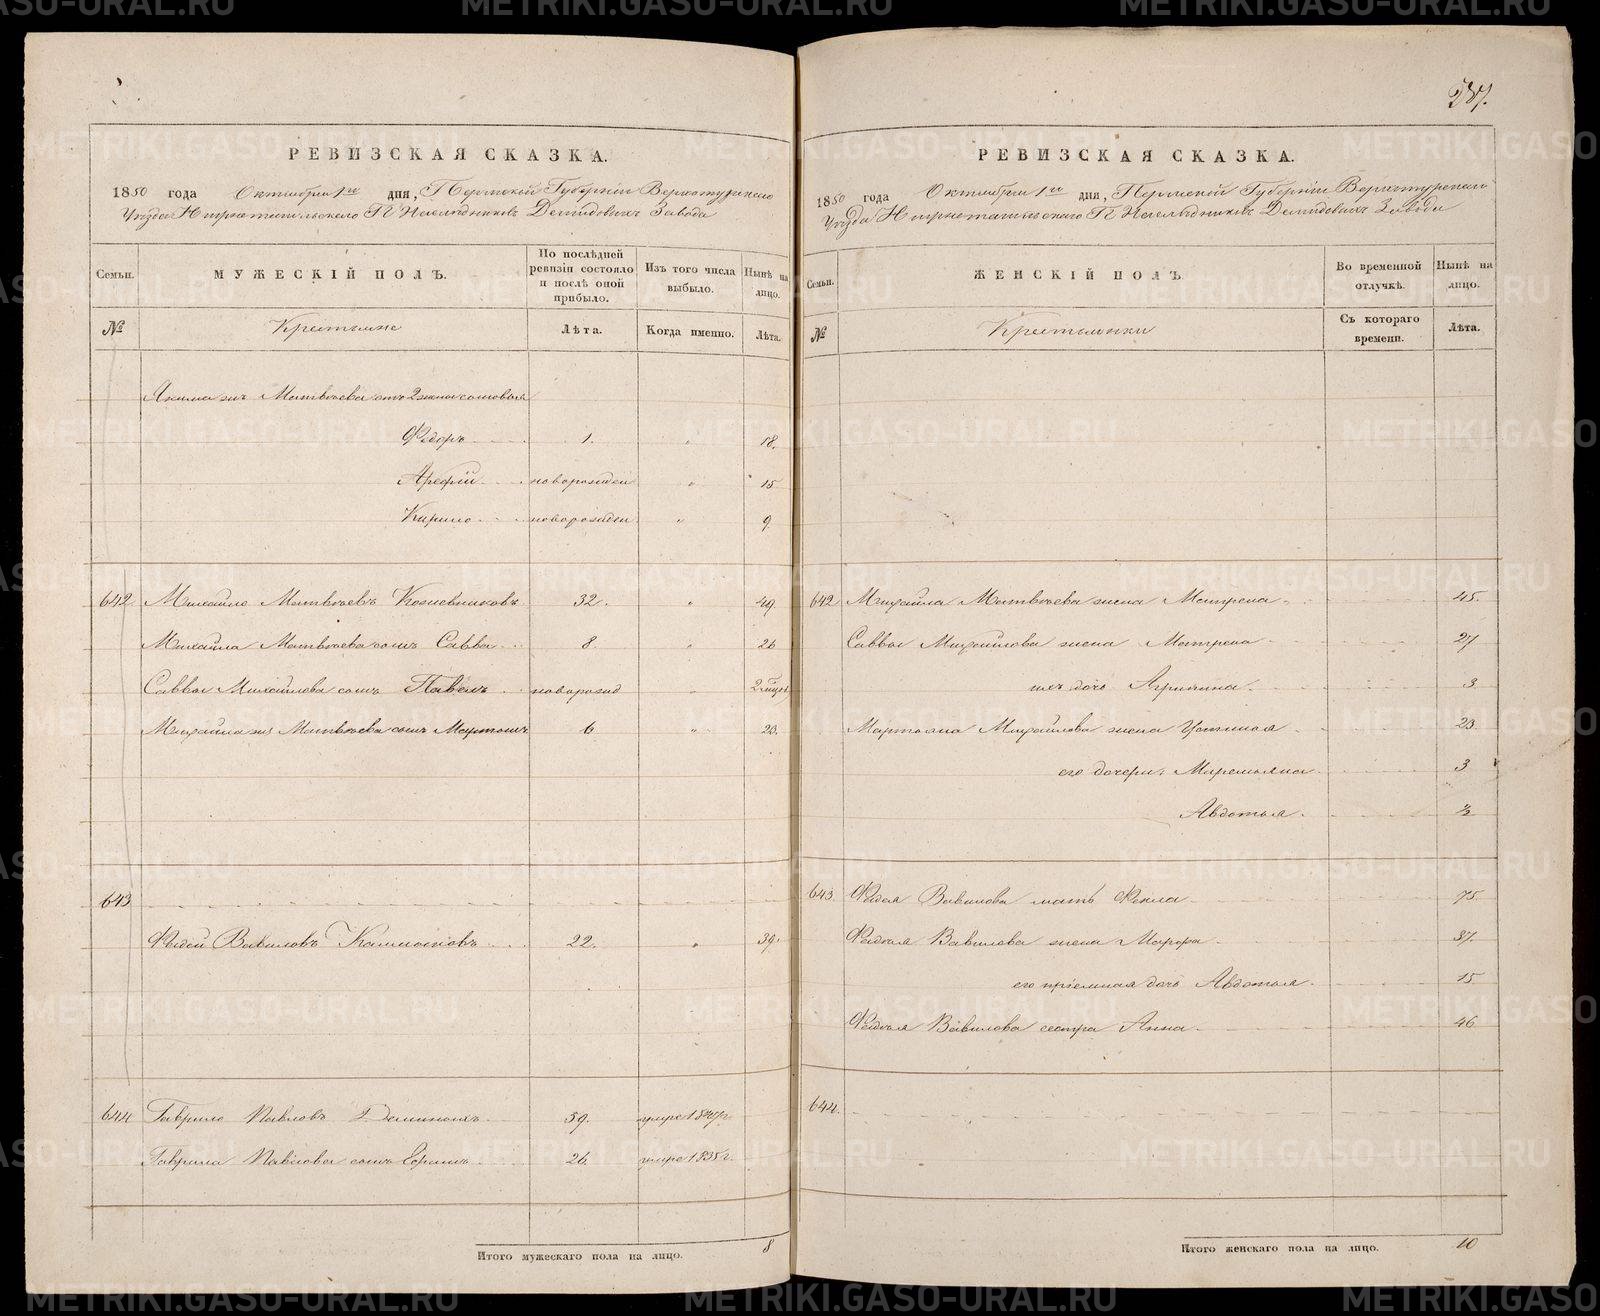 РЕВИЗСКАЯ СКАЗКА.
1850 года Октября 1го дня, Пермской Губерніи Верхотурскаго
Уѣзда Нижнотагильскаго Гг Наслѣдниковъ Демидовыхъ Завода
Семьи.
МУЖЕСКІЙ ПОЛЪ.
По послѣдней ревизіи состояло и послѣ оной прибыло.
Изъ того числа выбыло.
Нынѣ на лицо.
№
Крестьяне
Лѣта.
Когда именно.
Лѣта.
Матвѣева отъ 2 жены сыновья
Федоръ 1. " 18.
Арефій новорожден " 15
Кирило новорожден " 9.
642 Михайло Матвѣевъ Кожевниковъ 32. " 49
Михайла Матвѣева сынъ Савва 8. " 26
Саввы Михайлова сынъ Павелъ новорожд "
Михайла Матвѣева сынъ Мартынъ 6 " 23.
643
Фадей Вавиловъ 22. " 39.
644 Гаврило Павловъ 59. умре 1847г
Гаврила Павлова сынъ Ефимъ 26. умре 1835г.
Итого мужескаго пола на лицо. 8
237.
РЕВИЗСКАЯ СКАЗКА.
1850 года Октября 1го дня, Пермской Губерніи Верхотурскаго
Уѣзда Нижнотагильскаго Гг Наслѣдниковъ Демидовыхъ Завода
Семьи.
ЖЕНСКІЙ ПОЛЪ.
Во временной отлучкѣ.
Нынѣ на лицо.
№
Крестьянки
Съ котораго времени.
Лѣта.
642 Михайла Матвѣева жена Матрена 45.
Саввы Михайлова жена Матрена 27
ихъ дочь Агрипина 3
Мартына Михайлова жена Устинья 23
его дочери: Маремьяна 3
Авдотья
643 Фадея Вавилова мать Фекла 75
Фадея Вавилова жена Марфа 37.
его пріемная дочь Авдотья 15
Фадея Вавилова сестра Анна 46
644.
Итого женскаго пола на лицо. 10
METRIKI.GASO-URAL.RU